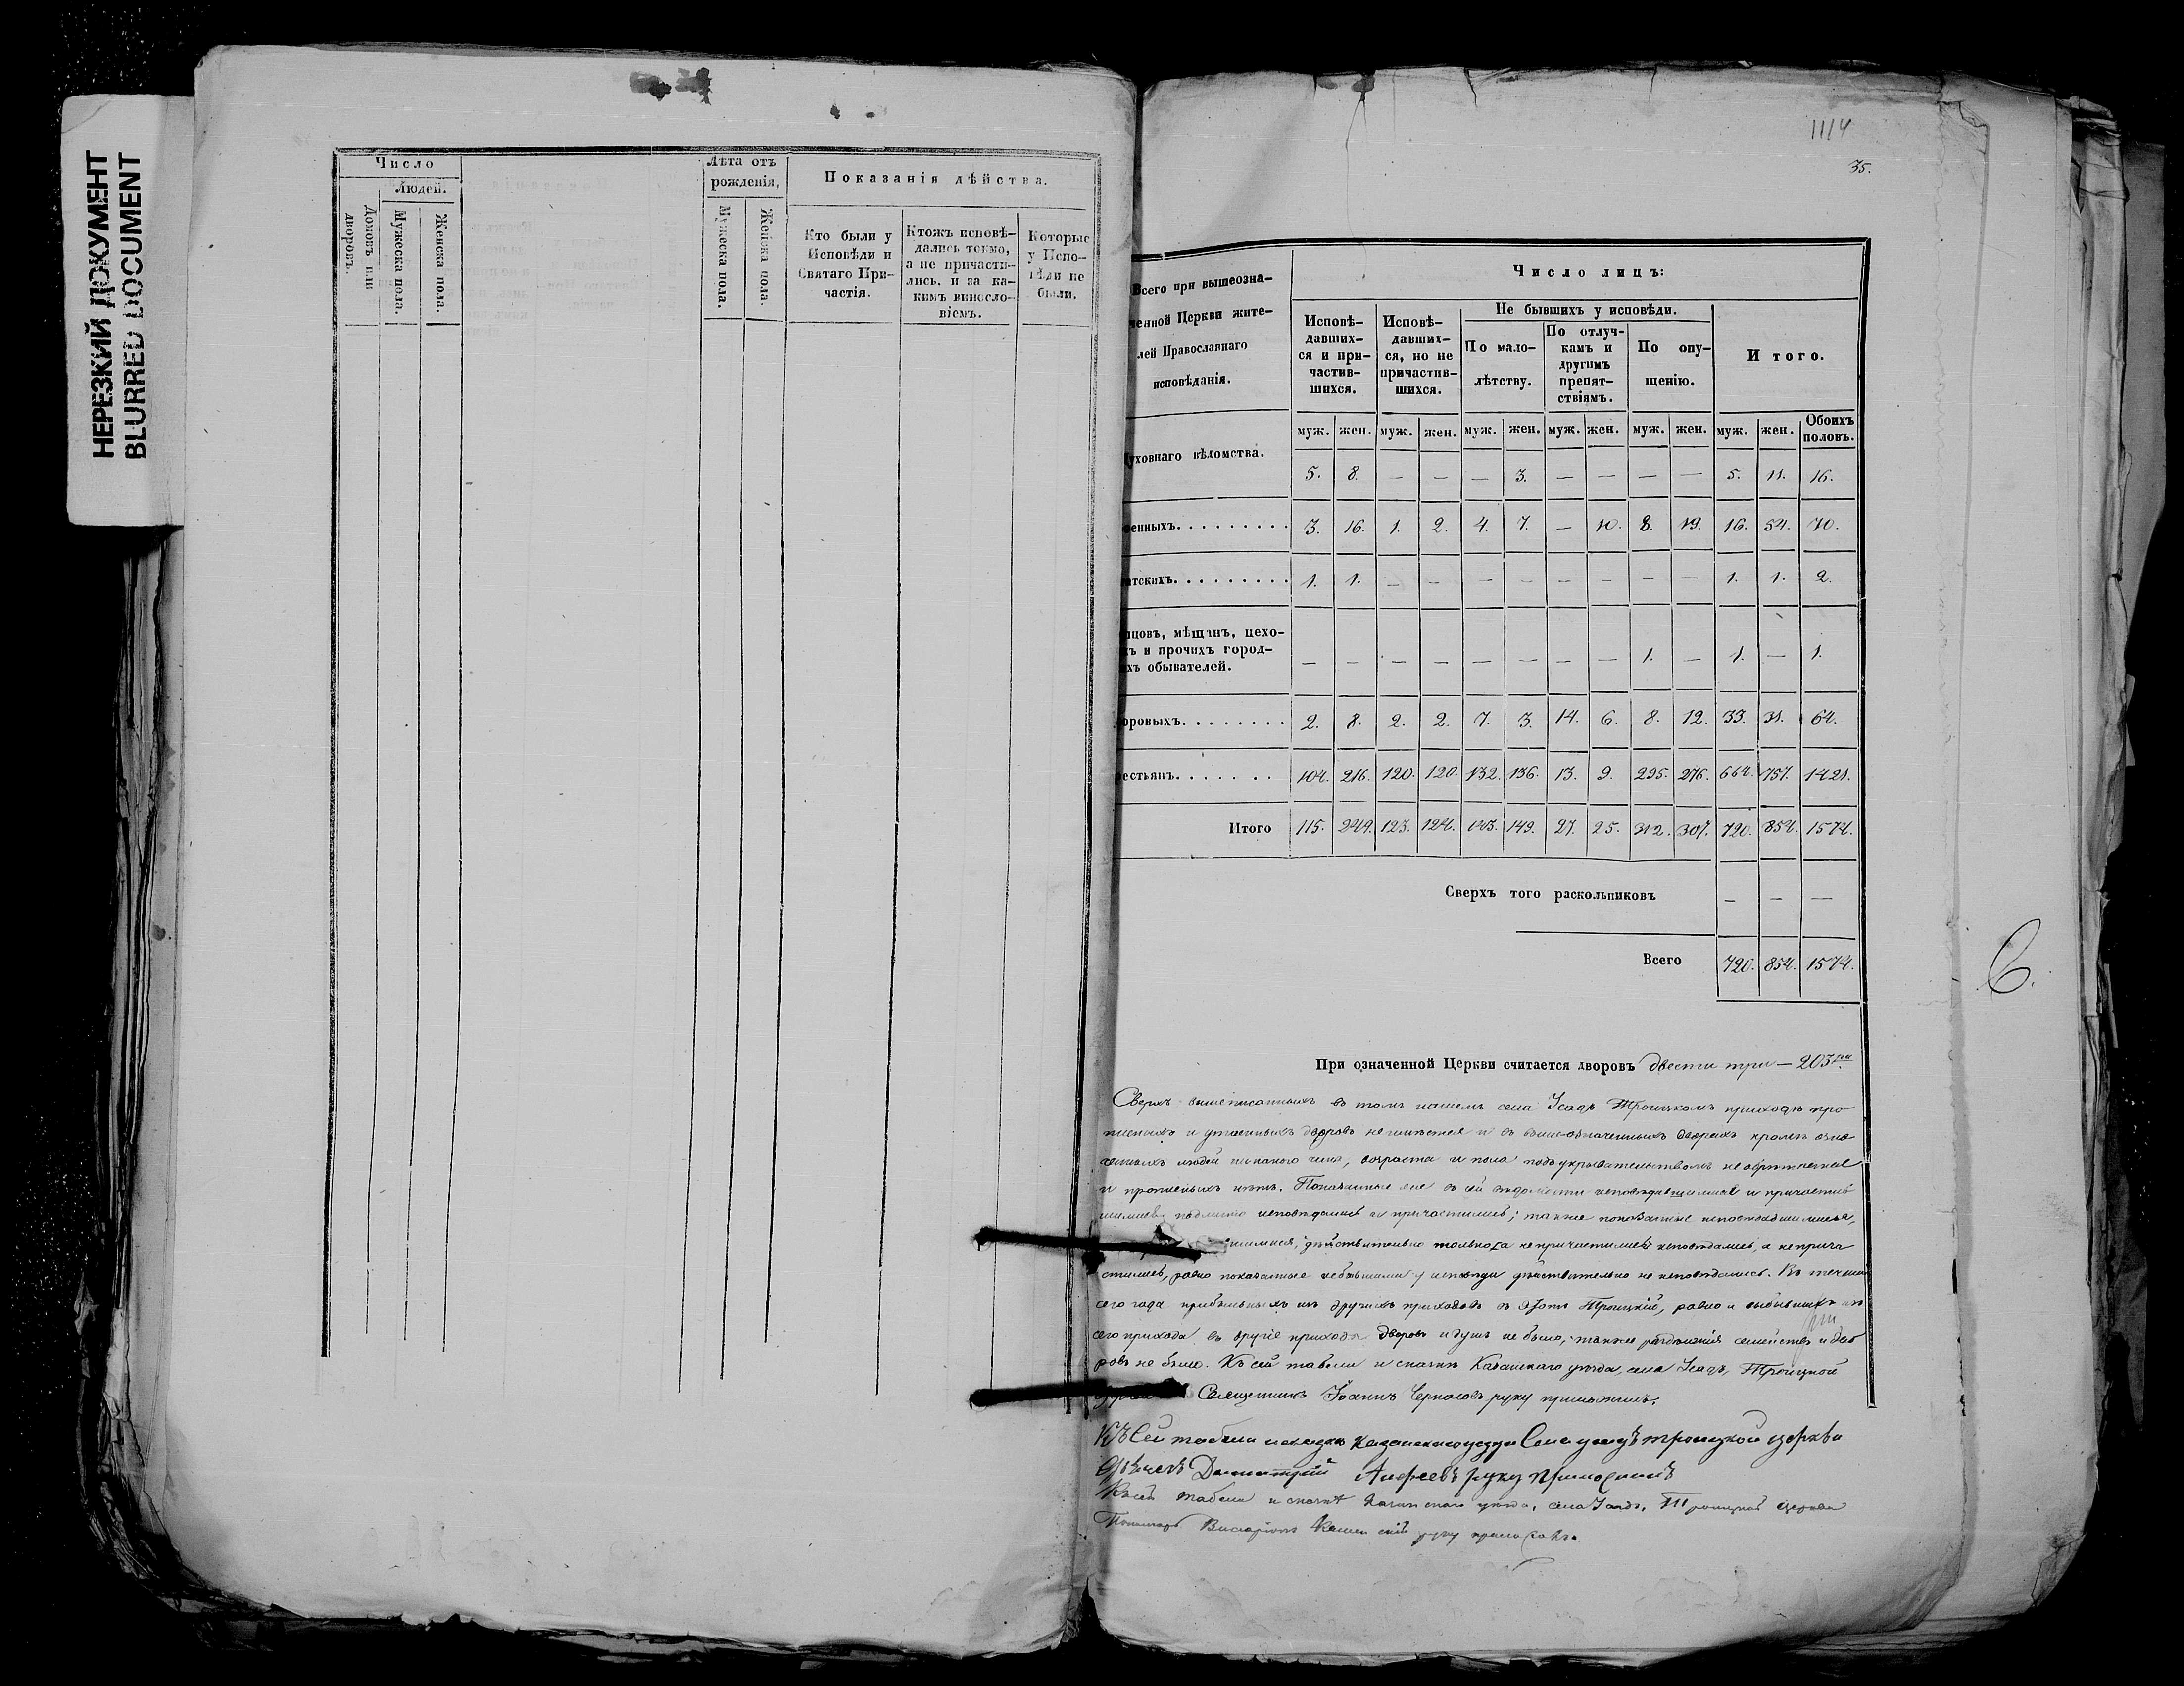 НЕРЕЗКИЙ ДОКУМЕНТ
BLURRED DOCUMENT
Число
Людей.
Домовъ или дворовъ.
Мужеска пола.
Женска пола.
Лѣта отъ рожденія,
Мужеска пола.
Женска пола.
Показанія дѣйства.
Кто были у Исповѣди и Святаго Причастія.
Ктожъ исповѣдались токмо, а не причастились, и за какимъ винословіемъ.
Которые у Исповѣди не были.
1114
35.
Всего при вышеозна-
ченной Церкви жите-
лей Православнаго
исповѣданія.
Число лицъ:
Исповѣ-
давших-
ся и при-
частив-
шихся.
Исповѣ-
давших-
ся, но не
причастив-
шихся.
Не бывшихъ у исповѣди.
По мало-
лѣтству.
По отлуч-
камъ и
другимъ
препят-
ствіямъ.
По опу-
щенію.
Итого.
муж. жен. муж. жен. муж. жен. муж. жен. муж. жен. муж. жен. Обоихъ половъ.
уховнаго вѣдомства. 5. 8. — — — 3. — — — — 5. 11. 16.
оенныхъ. 3. 16. 1. 2. 4. 7. — 10. 8. 19. 16. 54. 70.
атскихъ. 1. 1. — — — — — — — — 1. 1. 2.
пцовъ, мѣщанъ, цехо-
хъ и прочихъ город-
хъ обывателей. — — — — — — — — 1. — 1. — 1.
оровыхъ. 2. 8. 2. 2. 7. 3. 14. 6. 8. 12. 33. 31. 64.
естьянъ. 104. 216. 120. 120. 132. 136. 13. 9. 295. 276. 664. 757. 1421.
Итого 115. 249. 123. 124. 143. 149. 27. 25. 312. 307. 720. 854. 1574.
Сверхъ того раскольниковъ — — —
Всего 720. 854. 1574.
6.
При означенной Церкви считается дворовъ двести три — 203
Сверхъ вышеписанныхъ въ томъ нашемъ села Усадъ Троицкомъ приходѣ про
писныхъ и утаенныхъ дворовъ неимѣется и въ вышеозначенныхъ дворахъ кромѣ озна
ченныхъ людей никакого чина, возраста и пола подъ укрывательствомъ
и прописныхъ нѣтъ. Показанные въ сей вѣдомости и причастив
шимися исповѣдались и причастились; также показанные исповѣдавшимися,
дѣйствительно только исповѣдались, а не прича
стились, равно показанные небывшими у исповѣди дѣйствительно не исповѣдались. Въ теченіи
сего года прибывшихъ изъ другихъ приходовъ въ Троицкій, равно и выбывшихъ изъ
сего прихода въ другіе приходы дворовъ и душъ не было, также раздѣленія семействъ и дво
ровъ не было. Къ сей табели и Казанскаго уѣзда, села Усадъ, Троицкой
Священникъ Іоаннъ руку приложилъ.
Къ Сей табели Казанскаго уезда Села усадъ троицкой церкви
Дьячекъ Димитрій Андреевъ руку приложилъ
Къ сей табели и Казанскаго уѣзда, села Усадъ, Троицкой церкви
Пономарь руку приложилъ.